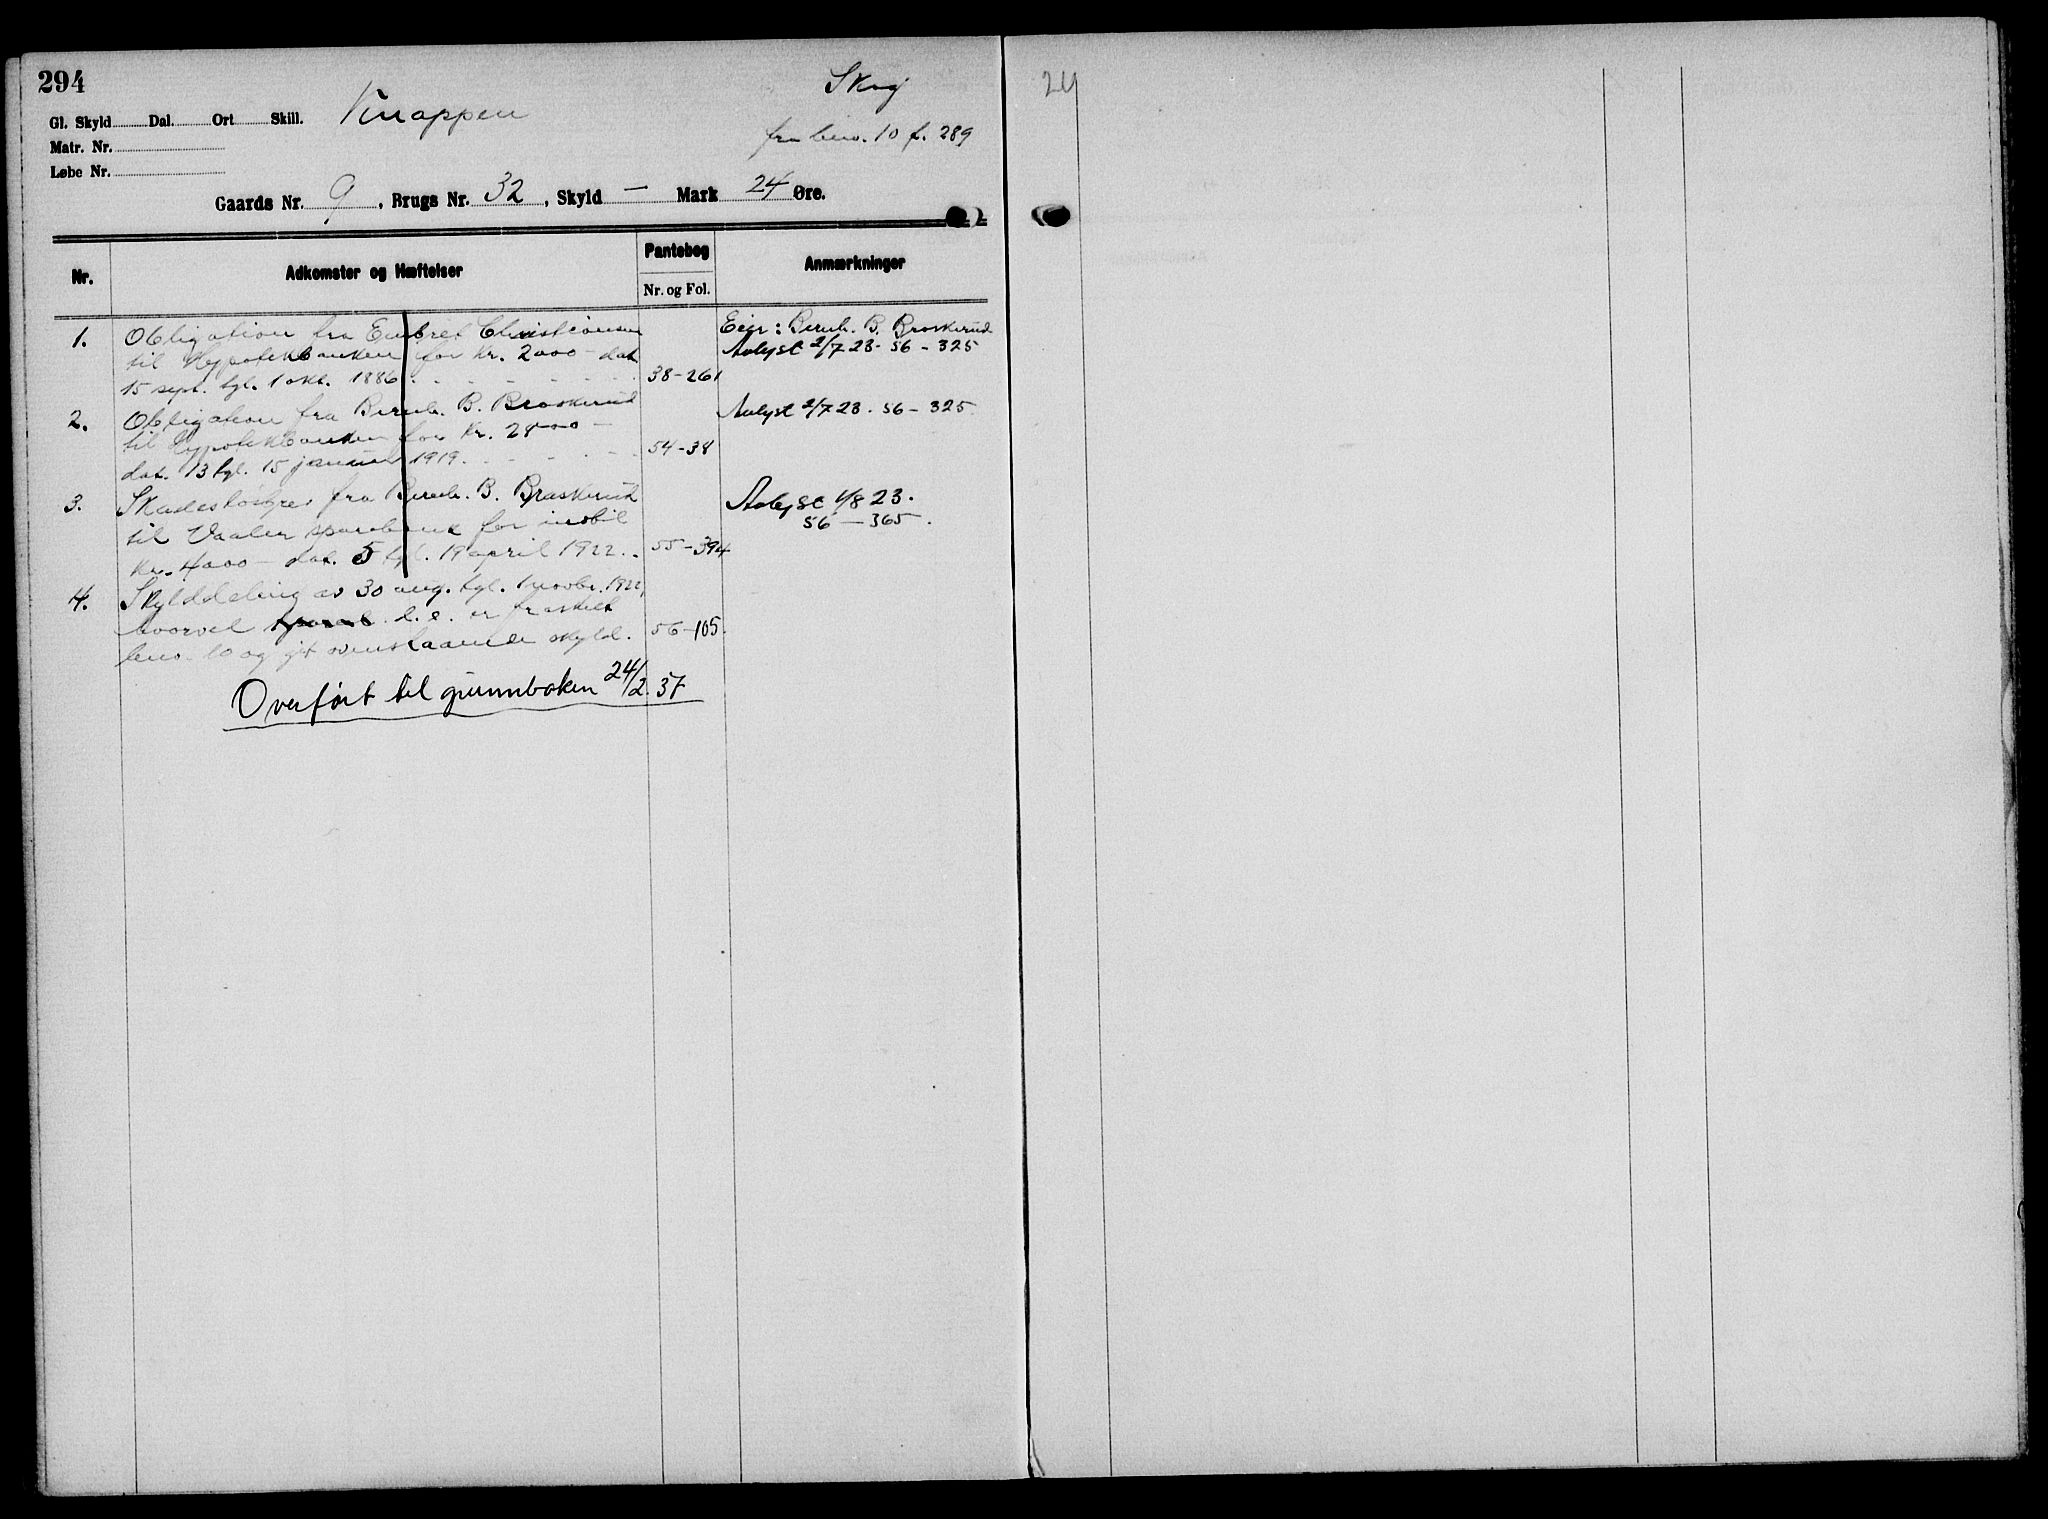 294
Skog
Knappen
Gl. Skyld Dal. Ort Skill.
fra brno. 10 f. 289
Matr. Nr.
Løbe Nr.
Gaards Nr. 9, Brugs Nr. 32, Skyld — Mark 24 Øre.
Nr. Adkomster og Hæftelser Pantebog Nr. og Fol. Anmærkninger
1. Obligation fra Embret Christiansen Eier: Bernh. B. Braskerud
til Hypotekbanken for kr. 2000 - dat. Avlyst 2/7 23 - 56 - 325
15 sept. tgl. 1 okt. 1886. 38-261
2. Obligation fra Bernh. B. Braskerud Avlyst 2/7 23. 56 - 325.
til Hypotekbanken for kr. 2800 -
dat. 13 tgl. 15 januar 1919. 54-38
3. Skadesløsbrev fra Bernh. B. Braskerud Avlyst 1/8 23.
til Vaaler sparebank for inntil 56 - 365.
kr. 4000 - dat. 5 tgl. 19 april 1922. 55-394
4. Skylddeling av 30 aug. tgl. 1 novbr. 1922,
hvorved d. e. er fraskilt
brno. 10 og git ovenstaaende skyld. 56-105.
Overført til grunnboken 24/2. 37
24